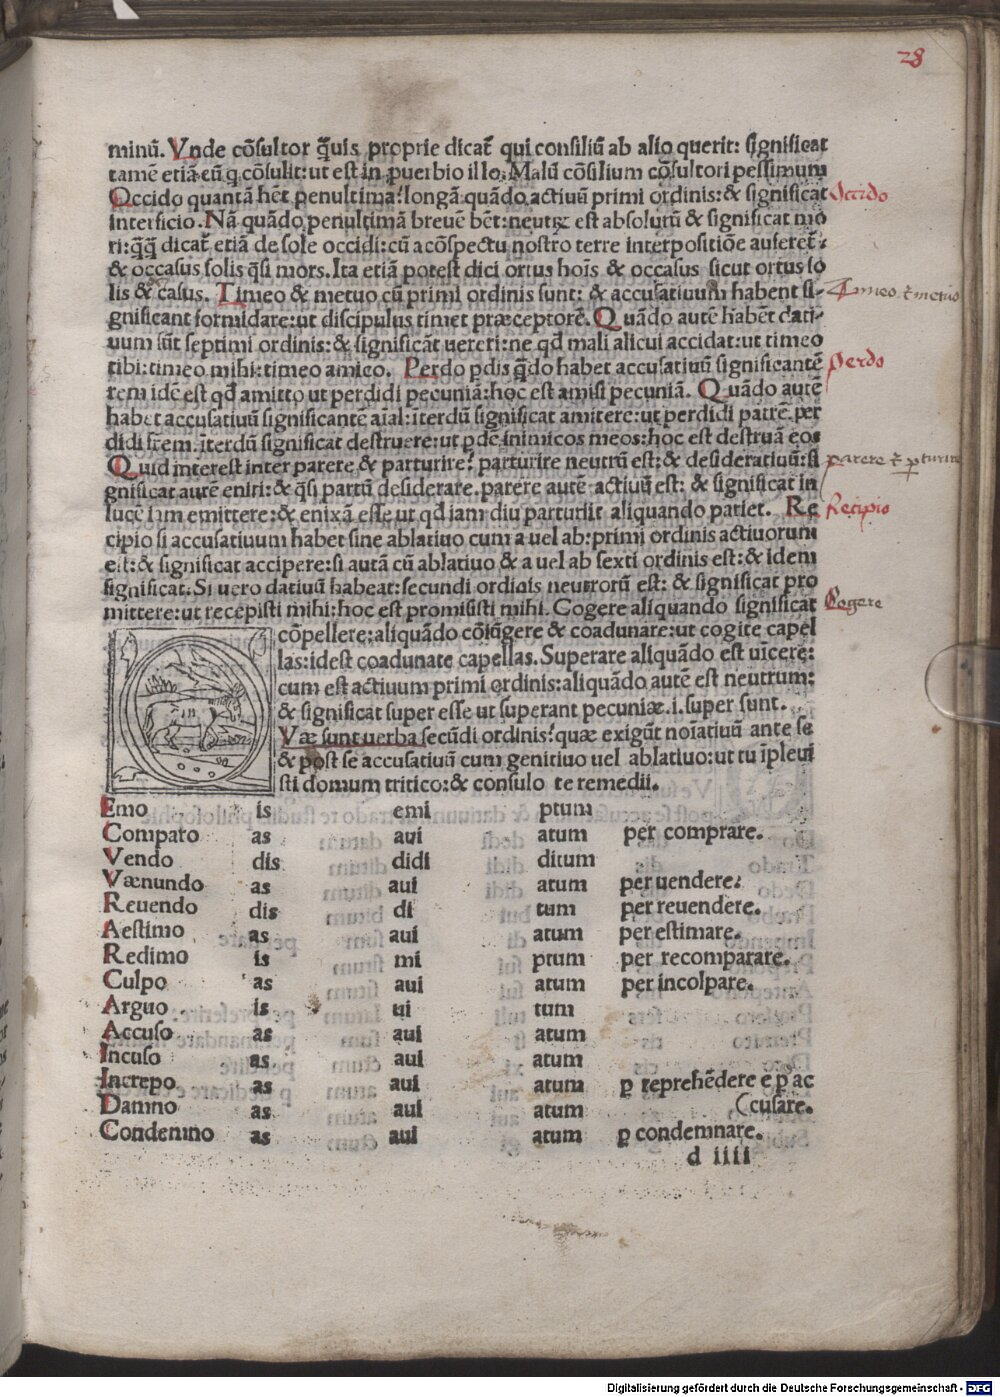 28
minū. Vnde cōsultor q̄uis proprie dicat̄ qui consiliū ab alio querit: significat
tamē etiā eū q cōsulit: ut est in ꝓuerbio illo: Malū cōsilium cōsultori pessimum
Occido quantā hēt penultimā: longā: quādo actiuū primi ordinis: & significat
Occido
interficio. Nā quādo penultimā breuē het: neutꝝ est absolutū & significat mo
ri: q̄q̄ dicat̄ etiā de sole occidi: cū a cōspectu nostro terre interpositiōe auferet̄:
& occasus solis q̄si mors. Ita etiā potest dici ortus hoīs & occasus sicut ortus so
lis & casus. Timeo & metuo cū primi ordinis sunt: & accusatiuum habent si-
Timeo & metuo
gnificant formidare: ut discipulus timet præceptorē. Quādo autē habēt dati-
uum sūt septimi ordinis: & significāt uereri: ne qd̄ mali alicui accidat: ut timeo
tibi: timeo mihi: timeo amico. Perdo ꝑdis q̄do habet accusatiuū significantē
Perdo
rem idē est qd̄ amitto ut perdidi pecuniā: hoc est amisi pecuniā. Quādo autē
habet accusatiuū significantē aīal: īterdū significat amitere: ut perdidi patrē. per
didi fr̄em. īterdū significat destruere: ut ꝑdē inimicos meos: hoc est destruā eos
Quid interest inter parere & parturire? parturire neutrū est: & desideratiuū: si
parere & ꝑturire
gnificat autē eniti: & q̄si partū desiderare. parere autē actiuū est: & significat in
lucē iam emittere: & enixā esse ut qd̄ iam diu parturiit aliquando pariet. Re
Recipio
cipio si accusatiuum habet sine ablatiuo cum a uel ab: primi ordinis actiuorum
est: & significat accipere: si autā cū ablatiuo & a uel ab sexti ordinis est: & idem
significat. Si uero datiuū habeat: secundi ordinis neutrorū est: & significat pro
mittere: ut recepisti mihi: hoc est promisisti mihi. Cogere aliquando significat
Cogere
cōpellere: aliquādo cōiūgere & coadunare: ut cogite capel
las: idest coadunate capellas. Superare aliquādo est uīcere:
cum est actiuum primi ordinis: aliquādo autē est neutrum:
& significat super esse ut superant pecuniæ. i. super sunt.
QVæ sunt uerba secūdi ordinis? quæ exigūt noīatiuū ante se
& post se accusatiuū cum genitiuo uel ablatiuo: ut tu īpleui
sti domum tritico: & consulo te remedii.
Emo is emi ptum
Comparo as aui atum per comprare.
Vendo dis didi ditum
Vænundo as aui atum per uendere.
Reuendo dis di tum per reuendere.
Aestimo as aui atum per estimare.
Redimo is mi ptum per recomparare.
Culpo as aui atum per incolpare.
Arguo is ui tum
Accuso as aui atum
Incuso as aui atum
Increpo as aui atum ꝑ reprehēdere e ꝑ ac
Damno as aui atum (cusare.
Condemno as aui atum ꝑ condemnare.
d iiii
Digitalisierung gefördert durch die Deutsche Forschungsgemeinschaft - DFG